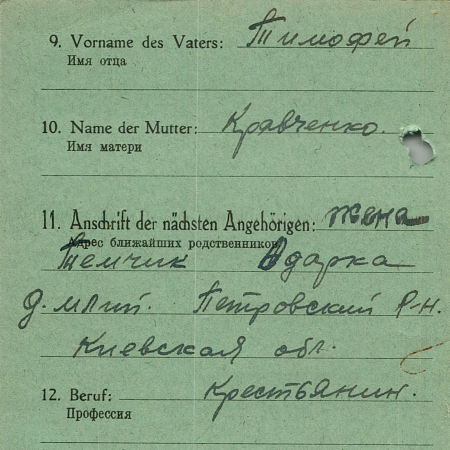 9. Vorname des Vaters: Тимофей
Имя отца
10. Name der Mutter: Кравченко.
Имя матери
11. Anschrift der nächsten Angehörigen: жена
Адрес ближайших родственников
Темчик Одарка
д. млий. Петровский р-н.
Киевская обл.
12. Beruf: Крестьянин.
Профессия